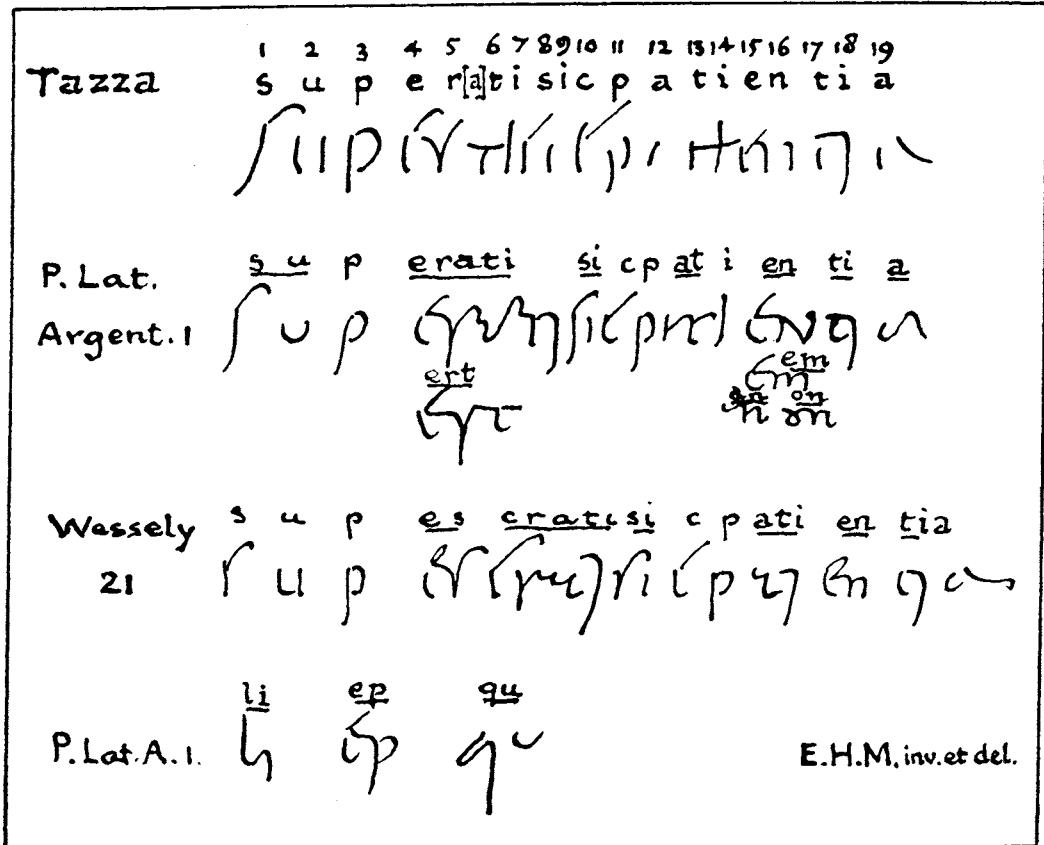 1 2 3 4 5 6 7 8 9 10 11 12 13 14 15 16 17 18 19
Tazza s u p e r[a]t i s i c p a t i e n t i a
P. Lat. s u p e r a t i s i c p a t i e n t i a
Argent. 1
e r t e m
o n
Wessely s u p e s c r a t i s i c p a t i e n t i a
21
l i e p q u
P. Lat. A. 1. E.H.M. inv. et del.